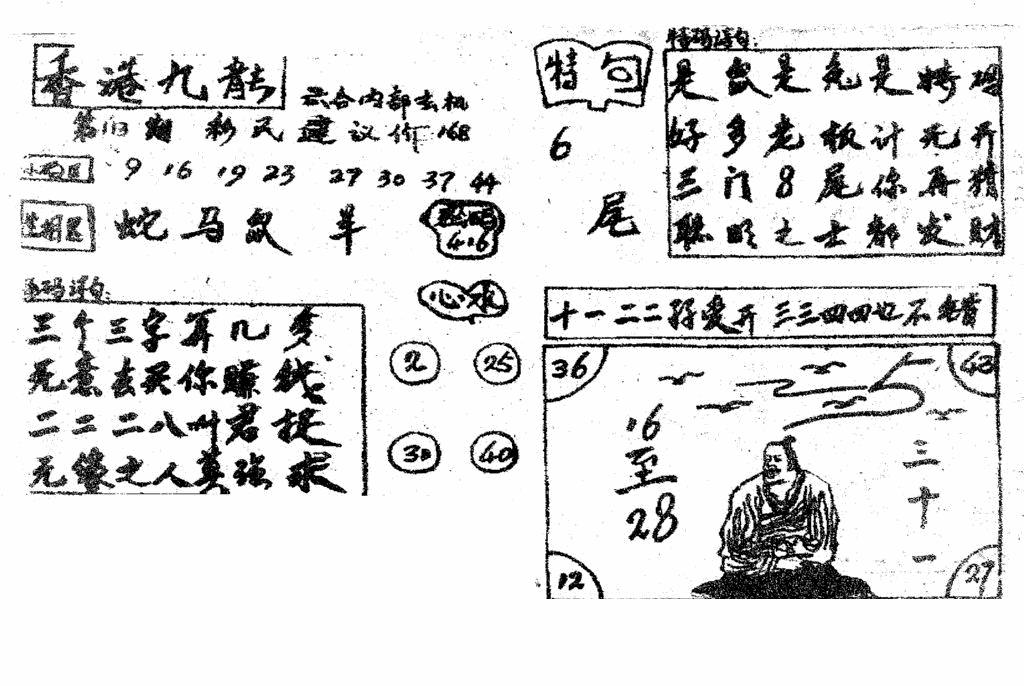 香港九龍
六合内部玄机
第113期 彩民建议价168
小码区 9 16 19 23 27 30 37 44
生肖区 蛇马鼠 羊
4.6
三个三字算几多
无意去买你赚钱
二二二八叫君捉
无缘之人莫强求
心水
2 25
30 40
特句
6
尾
特码诗句:
是鼠是兔是特码
好多老板计无开
三门8尾你再猜
聪明之士都发财
十一二二孖爱开 三三四四也不错
36 43
16
至
28
三
十
一
12 27